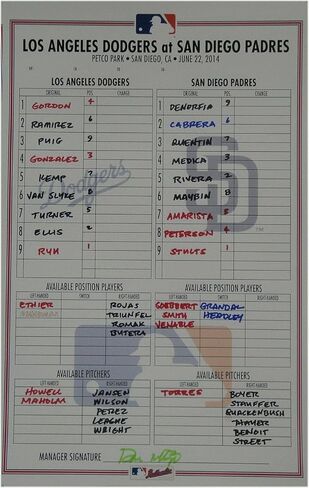 LOS ANGELES DODGERS at SAN DIEGO PADRES
PETCO PARK • SAN DIEGO, CA • JUNE 22, 2014
LOS ANGELES DODGERS
ORIGINAL POS. CHANGE
1 GORDON 4
2 RAMIREZ 6
3 PUIG 9
4 GONZALEZ 3
5 KEMP 7
6 VAN SLYKE 8
7 TURNER 5
8 ELLIS 2
9 RYU 1
SAN DIEGO PADRES
ORIGINAL POS. CHANGE
1 DENORFIA 9
2 CABRERA 6
3 QUENTIN 7
4 MEDICA 3
5 RIVERA 2
6 MAYBIN 8
7 AMARISTA 5
8 PETERSON 4
9 STULTS 1
Dodgers
SD
AVAILABLE POSITION PLAYERS
LEFT-HANDED SWITCH RIGHT-HANDED
ETHIER ROJAS
TRIUNFEL
ROMAK
BUTERA
AVAILABLE POSITION PLAYERS
LEFT-HANDED SWITCH RIGHT-HANDED
GOEBBERT GRANDAL
SMITH HEADLEY
VENABLE
AVAILABLE PITCHERS
LEFT-HANDED RIGHT-HANDED
HOWELL JANSEN
MAHOLM WILSON
PEREZ
LEAGUE
WRIGHT
AVAILABLE PITCHERS
LEFT-HANDED RIGHT-HANDED
TORRES BOYER
STAUFFER
QUACKENBUSH
THAYER
BENOIT
STREET
MANAGER SIGNATURE